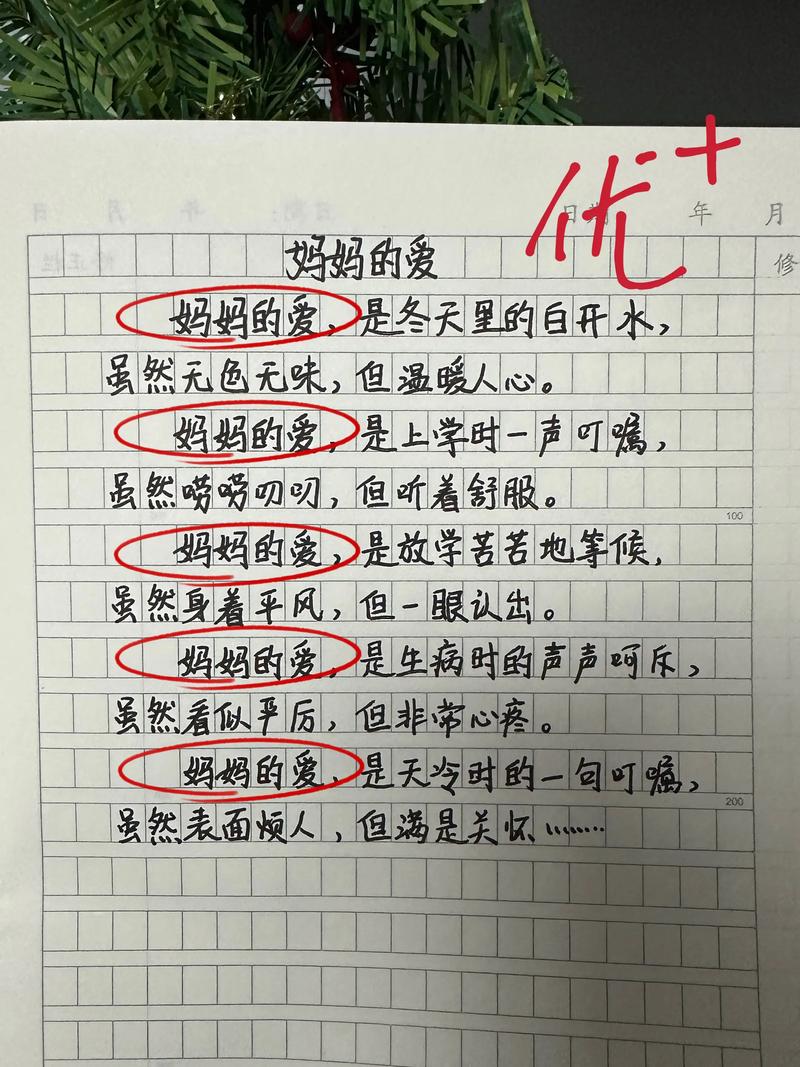 优+
日期 年 月
修
妈妈的爱
妈妈的爱,是冬天里的白开水,
虽然无色无味,但温暖人心。
妈妈的爱,是上学时一声叮嘱,
虽然唠唠叨叨,但听着舒服。
100
妈妈的爱,是放学苦苦地等候,
虽然身着平风,但一眼认出。
妈妈的爱,是生病时的声声呵斥,
虽然看似平厉,但非常心疼。
妈妈的爱,是天冷时的一句叮嘱,
200
虽然表面烦人,但满是关怀………